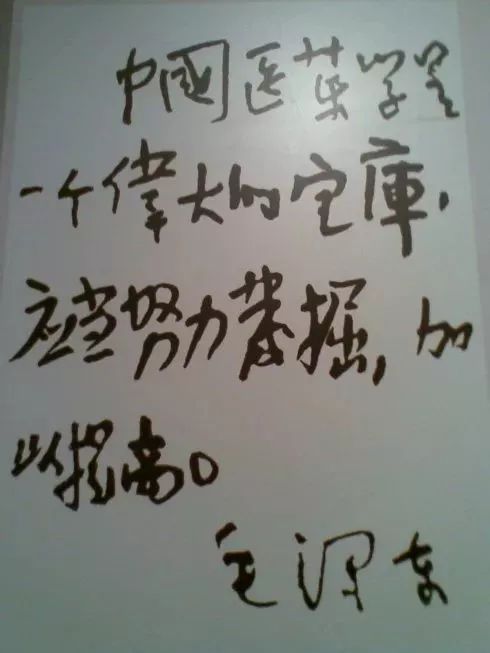 中國医药学是
一个偉大的宝庫，
应当努力发掘，加
以提高。
毛泽东